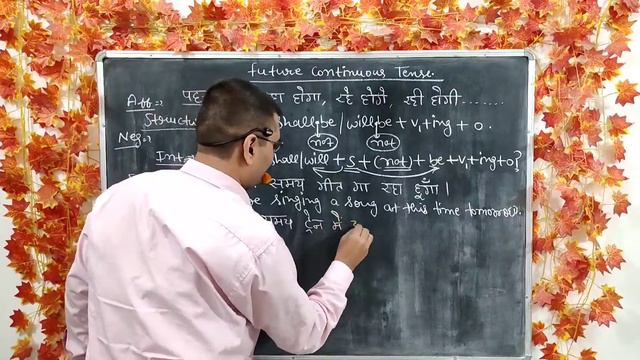 Future Continuous Tense.
Aff.→ होगा, रहे होंगे, रही होगी.......
Structu shall be / will be + V₁ + ing + O.
Neg.→ not not
Inte hall/will + S + (not) + be + V₁ + ing + O?
समय गीत गा रहा हूँगा।
be singing a song at this time tomorrow.
समय ट्रेन में